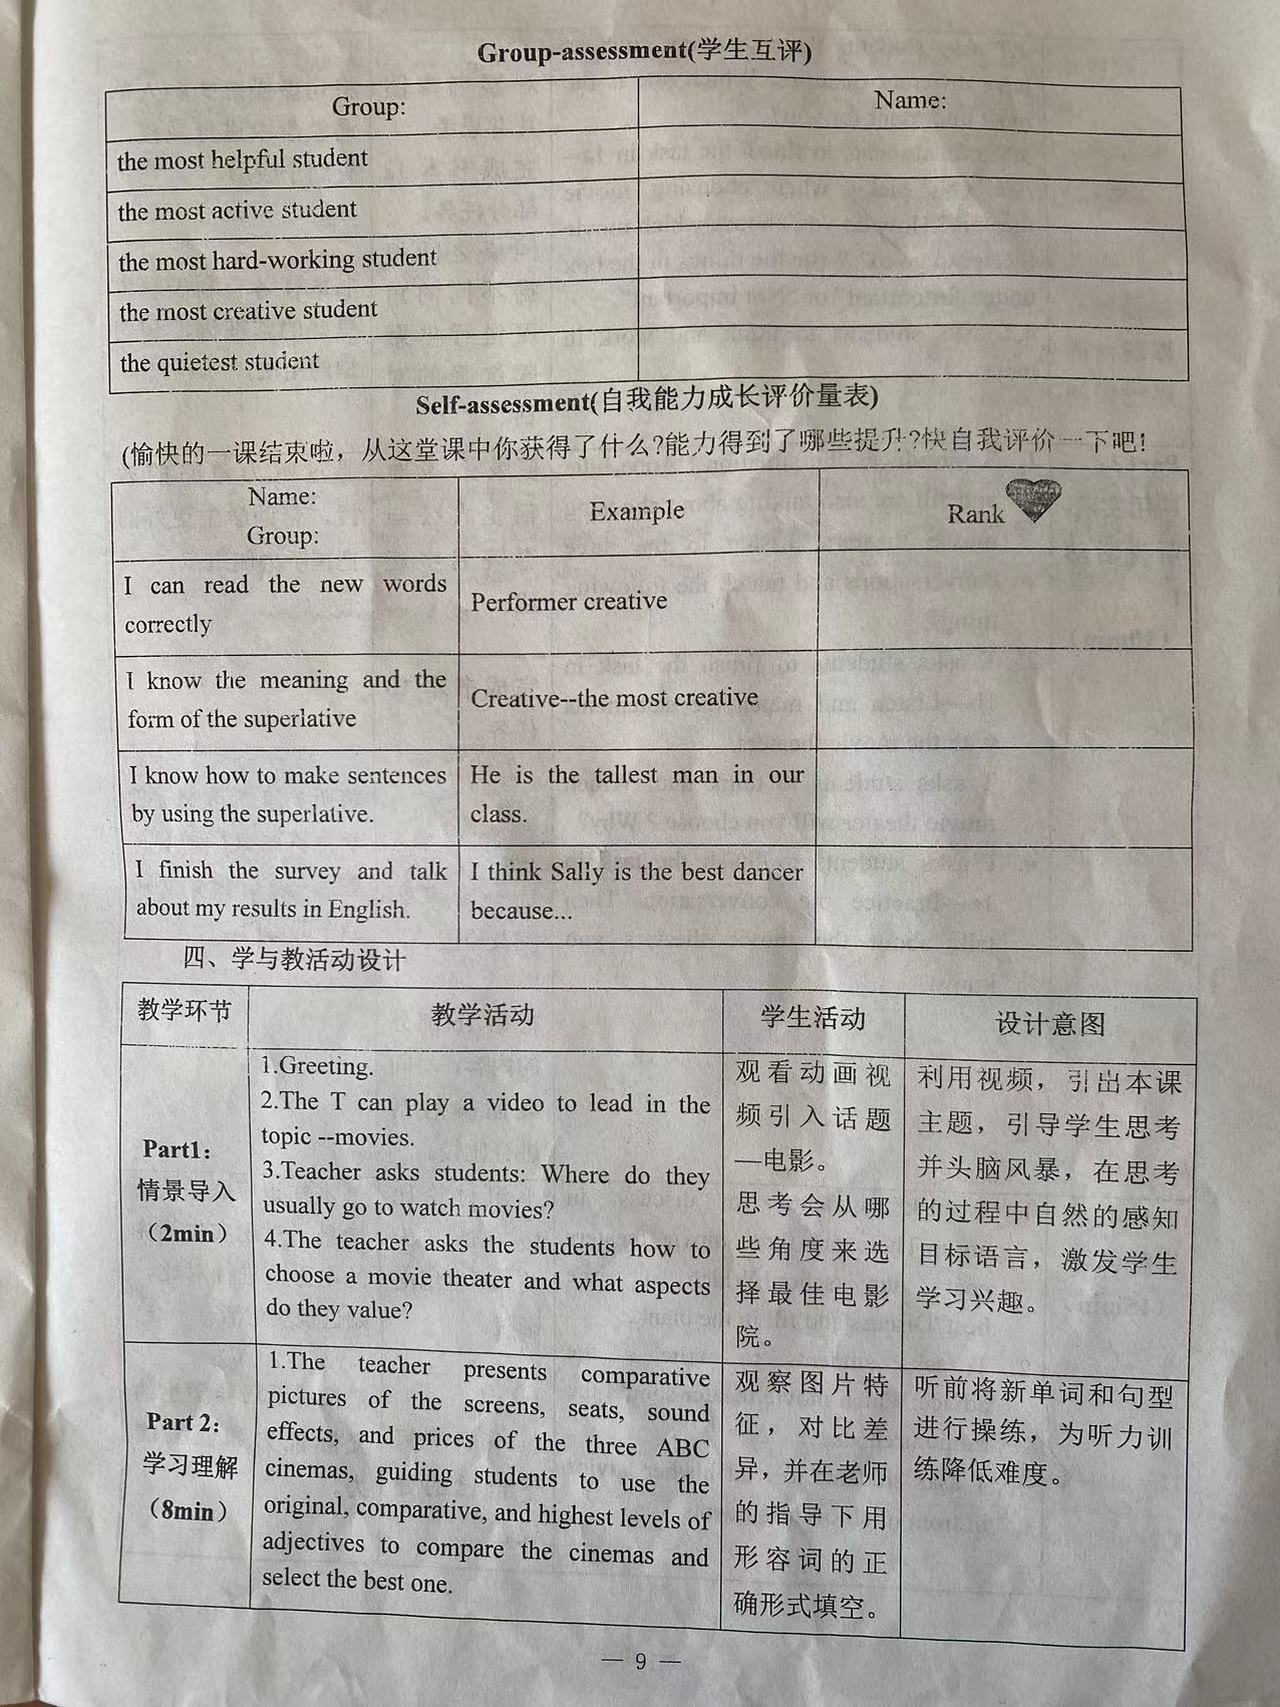 Group-assessment(学生互评)
Group:
Name:
the most helpful student
the most active student
the most hard-working student
the most creative student
the quietest student
Self-assessment(自我能力成长评价量表)
(愉快的一课结束啦，从这堂课中你获得了什么?能力得到了哪些提升?快自我评价一下吧!
Name:
Group:
Example
Rank
I can read the new words
correctly
Performer creative
I know the meaning and the
form of the superlative
Creative--the most creative
I know how to make sentences
by using the superlative.
He is the tallest man in our
class.
I finish the survey and talk
about my results in English.
I think Sally is the best dancer
because...
四、学与教活动设计
教学环节
教学活动
学生活动
设计意图
Part1:
情景导入
（2min）
1.Greeting.
2.The T can play a video to lead in the
topic --movies.
3.Teacher asks students: Where do they
usually go to watch movies?
4.The teacher asks the students how to
choose a movie theater and what aspects
do they value?
观看动画视
频引入话题
—电影。
思考会从哪
些角度来选
择最佳电影
院。
利用视频，引出本课
主题，引导学生思考
并头脑风暴，在思考
的过程中自然的感知
目标语言，激发学生
学习兴趣。
Part 2:
学习理解
（8min）
1.The teacher presents comparative
pictures of the screens, seats, sound
effects, and prices of the three ABC
cinemas, guiding students to use the
original, comparative, and highest levels of
adjectives to compare the cinemas and
select the best one.
观察图片特
征，对比差
异，并在老师
的指导下用
形容词的正
确形式填空。
听前将新单词和句型
进行操练，为听力训
练降低难度。
— 9 —